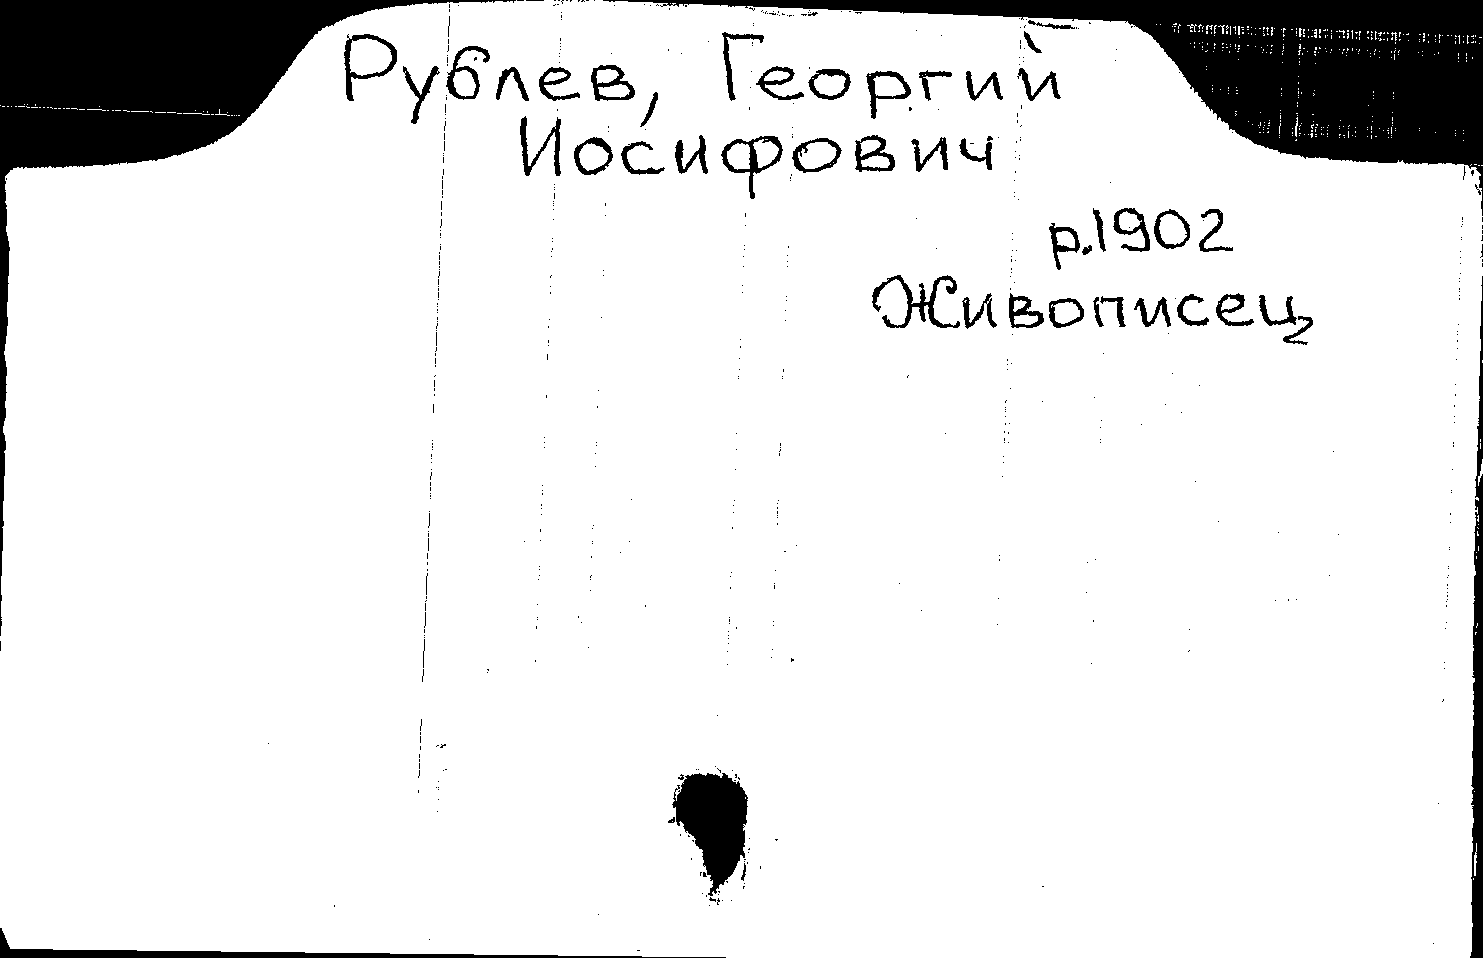 Рублев, Георгий
Иосифович
р.1902
Живописец